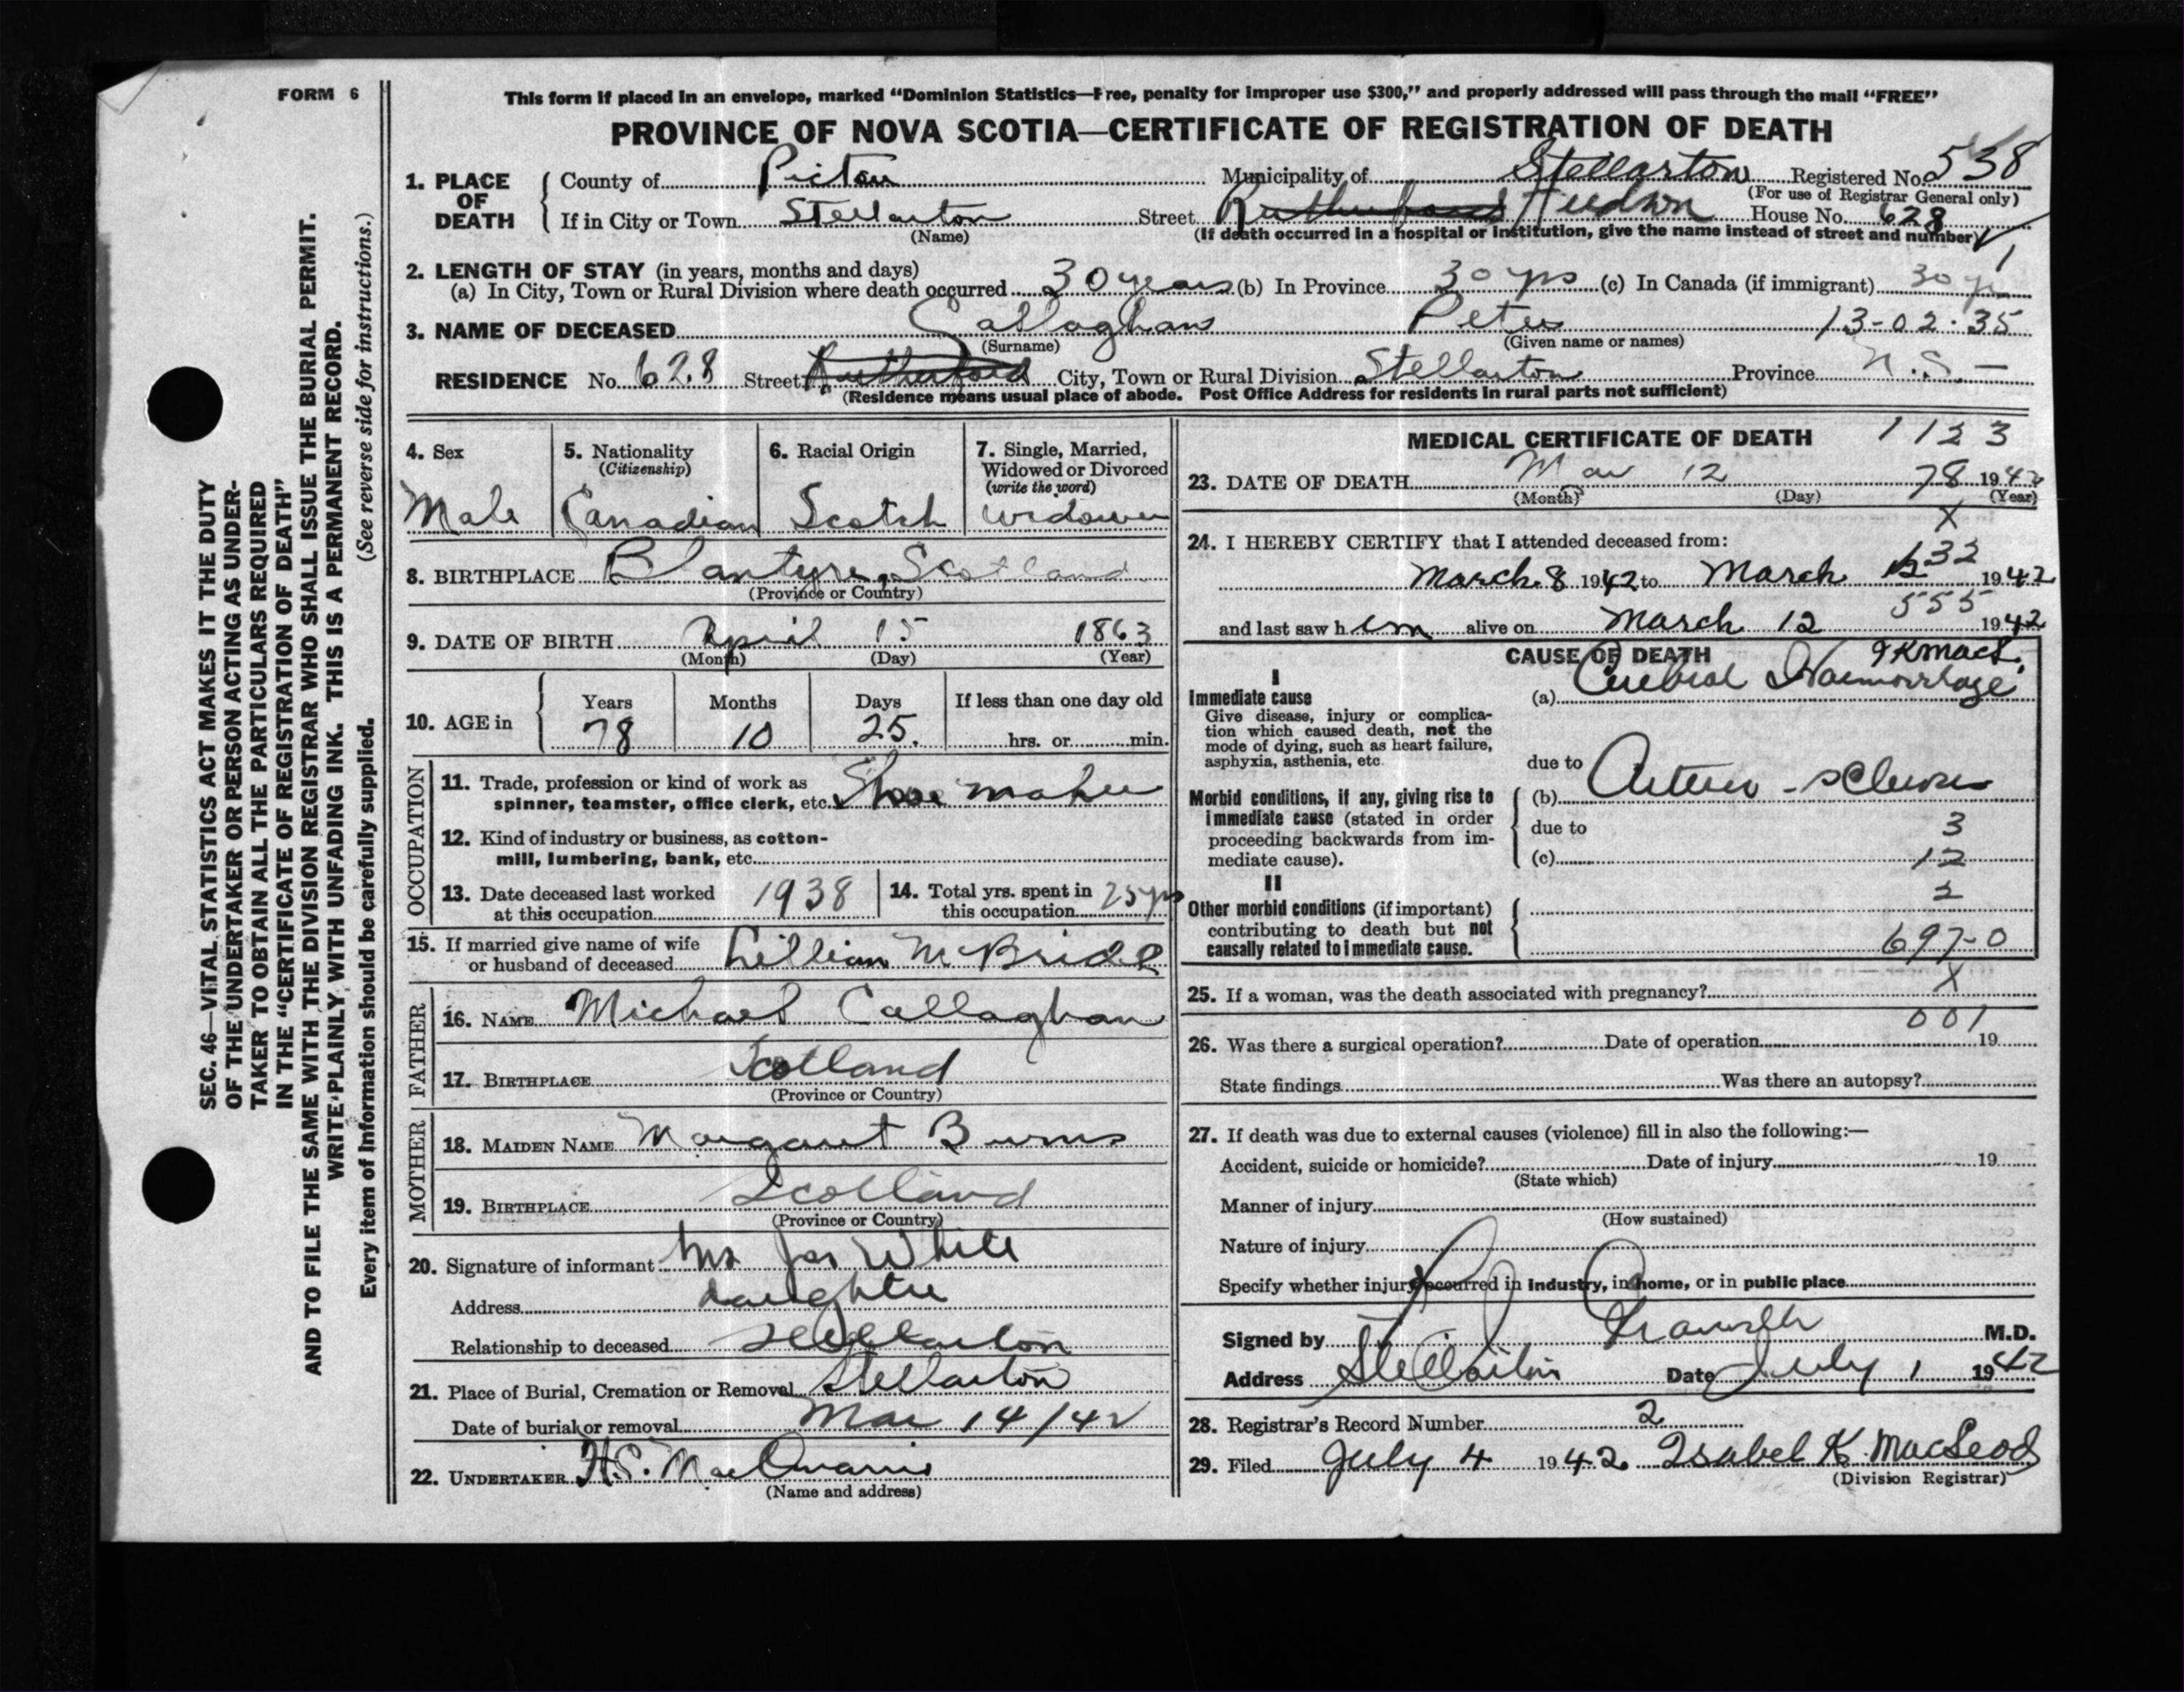 FORM 6
This form if placed in an envelope, marked “Dominion Statistics—Free, penalty for improper use $300,” and properly addressed will pass through the mail “FREE”
PROVINCE OF NOVA SCOTIA—CERTIFICATE OF REGISTRATION OF DEATH
SEC. 46—VITAL STATISTICS ACT MAKES IT THE DUTY
OF THE UNDERTAKER OR PERSON ACTING AS UNDER-
TAKER TO OBTAIN ALL THE PARTICULARS REQUIRED
IN THE “CERTIFICATE OF REGISTRATION OF DEATH”
AND TO FILE THE SAME WITH THE DIVISION REGISTRAR WHO SHALL ISSUE THE BURIAL PERMIT.
WRITE PLAINLY WITH UNFADING INK. THIS IS A PERMANENT RECORD.
Every item of information should be carefully supplied. (See reverse side for instructions.)
1. PLACE OF DEATH
County of Pictou Municipality of Stellarton Registered No. 538
(For use of Registrar General only)
If in City or Town Stellarton Street Rutherford Hudson House No. 628
(Name) (If death occurred in a hospital or institution, give the name instead of street and number)
2. LENGTH OF STAY (in years, months and days)
(a) In City, Town or Rural Division where death occurred 30 years (b) In Province 30 yrs (c) In Canada (if immigrant) 30 yrs
3. NAME OF DECEASED Callaghan Peter 13-02-35
(Surname) (Given name or names)
RESIDENCE No. 628 Street Rutherford City, Town or Rural Division Stellarton Province N.S. —
(Residence means usual place of abode. Post Office Address for residents in rural parts not sufficient)
4. Sex
Male
5. Nationality
(Citizenship)
Canadian
6. Racial Origin
Scotch
7. Single, Married,
Widowed or Divorced
(write the word)
widower
8. BIRTHPLACE Blantyre, Scotland
(Province or Country)
9. DATE OF BIRTH April 15 1863
(Month) (Day) (Year)
10. AGE in
Years Months Days If less than one day old
78 10 25. hrs. or min.
OCCUPATION
11. Trade, profession or kind of work as
spinner, teamster, office clerk, etc. Shoe maker
12. Kind of industry or business, as cotton-
mill, lumbering, bank, etc.
13. Date deceased last worked
at this occupation 1938
14. Total yrs. spent in
this occupation 25 yrs
15. If married give name of wife
or husband of deceased Lillian McBride
FATHER
16. NAME Michael Callaghan
17. BIRTHPLACE Scotland
(Province or Country)
MOTHER
18. MAIDEN NAME Margaret Burns
19. BIRTHPLACE Scotland
(Province or Country)
20. Signature of informant Mrs Jas White
Address daughter
Relationship to deceased Stellarton
21. Place of Burial, Cremation or Removal Stellarton
Date of burial or removal Mar 14/42
22. UNDERTAKER H.S. MacQuarrie
(Name and address)
MEDICAL CERTIFICATE OF DEATH 1123
23. DATE OF DEATH Mar 12 78 1942
(Month) (Day) (Year)
X
24. I HEREBY CERTIFY that I attended deceased from:
March 8 1942 to March 12 32 1942
555
and last saw him alive on March 12 1942
CAUSE OF DEATH IKMacL.
I
Immediate cause
Give disease, injury or complica-
tion which caused death, not the
mode of dying, such as heart failure,
asphyxia, asthenia, etc.
(a) Cerebral Haemorrhage
due to
Morbid conditions, if any, giving rise to
immediate cause (stated in order
proceeding backwards from im-
mediate cause).
(b) Arterio-sclerosis
due to 3
(c) 12
II
Other morbid conditions (if important)
contributing to death but not
causally related to immediate cause.
2
697-0
X
25. If a woman, was the death associated with pregnancy?
001
26. Was there a surgical operation? Date of operation 19
State findings Was there an autopsy?
27. If death was due to external causes (violence) fill in also the following:—
Accident, suicide or homicide? Date of injury 19
(State which)
Manner of injury
(How sustained)
Nature of injury
Specify whether injury occurred in industry, in home, or in public place
Signed by M.D.
Address Stellarton Date July 1 1942
28. Registrar's Record Number 2
29. Filed July 4 1942 Isabel K. MacLeod
(Division Registrar)